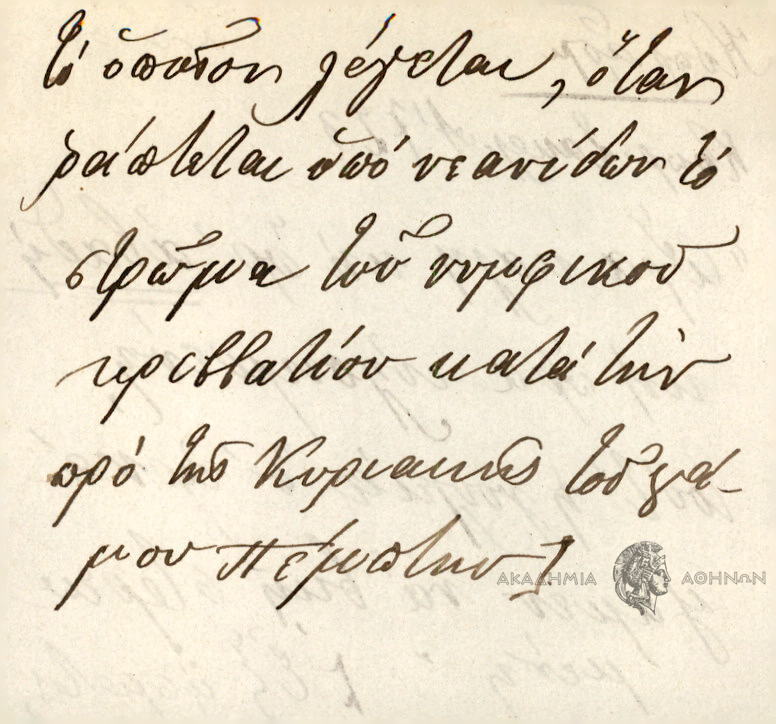 τὸ ὁποῖον λέγεται, ὅταν
ράπτεται ὑπὸ νεανίδων τὸ
στρῶμα τοῦ νυμφικοῦ
κρεββατίου κατὰ τὴν
πρὸ τῆς Κυριακῆς τοῦ γά-
μου Πέμπτην]
ΑΚΑΔΗΜΙΑ ΑΘΗΝΩΝ